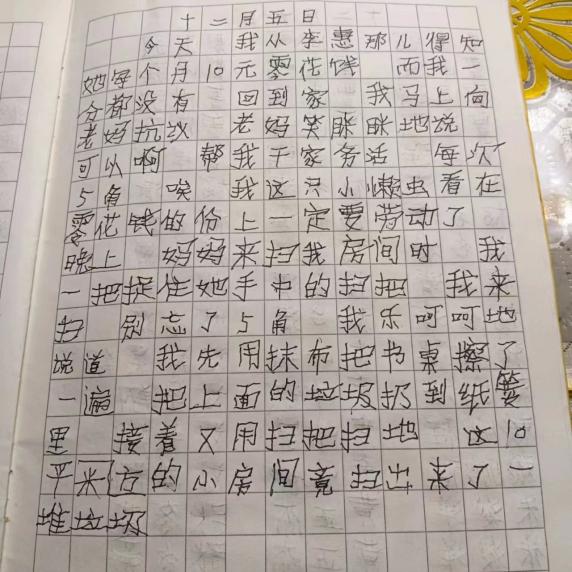 十二月五日
今天 我从李惠那儿得知
她每个月10元零花钱 而我一
分都没有 回到家 我马上向
老妈抗议 老妈笑眯眯地说
可以啊 帮我干家务活 每次
5角 唉 我这只小懒虫看在
零花钱的份上一定要劳动了
晚上 妈妈来扫我房间时 我
一把捉住她手中的扫把 我来
扫 别忘了5角 我乐呵呵地
说道 我先用抹布把书桌擦了
一遍 把上面的垃圾扔到纸篓
里 接着又用扫把扫地 这10
平米方的小房间竟扫出来了一
堆垃圾